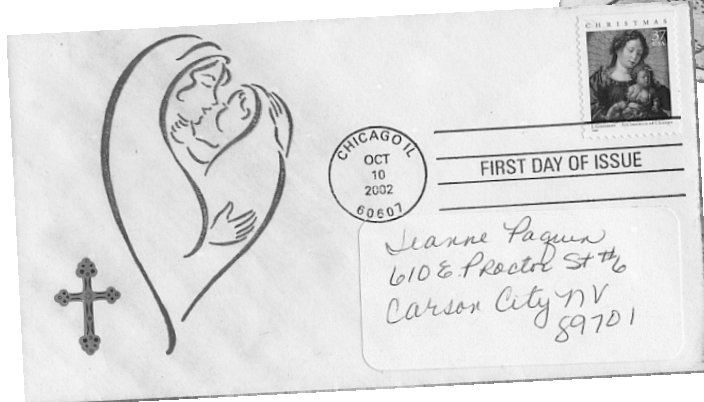 CHRISTMAS
37
USA
CHICAGO IL
OCT
10
2002
60607
FIRST DAY OF ISSUE
Jeanne Paquin
610 E. Proctor St #6
Carson City NV
89701